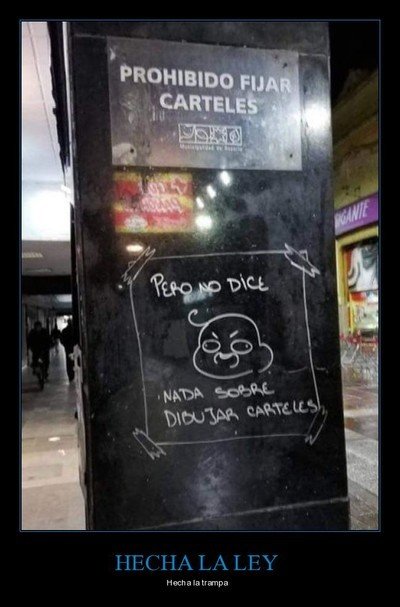 PROHIBIDO FIJAR
CARTELES
Municipalidad de Rosario
GIGANTE
PERO NO DICE
NADA SOBRE
DIBUJAR CARTELES
HECHA LA LEY
Hecha la trampa